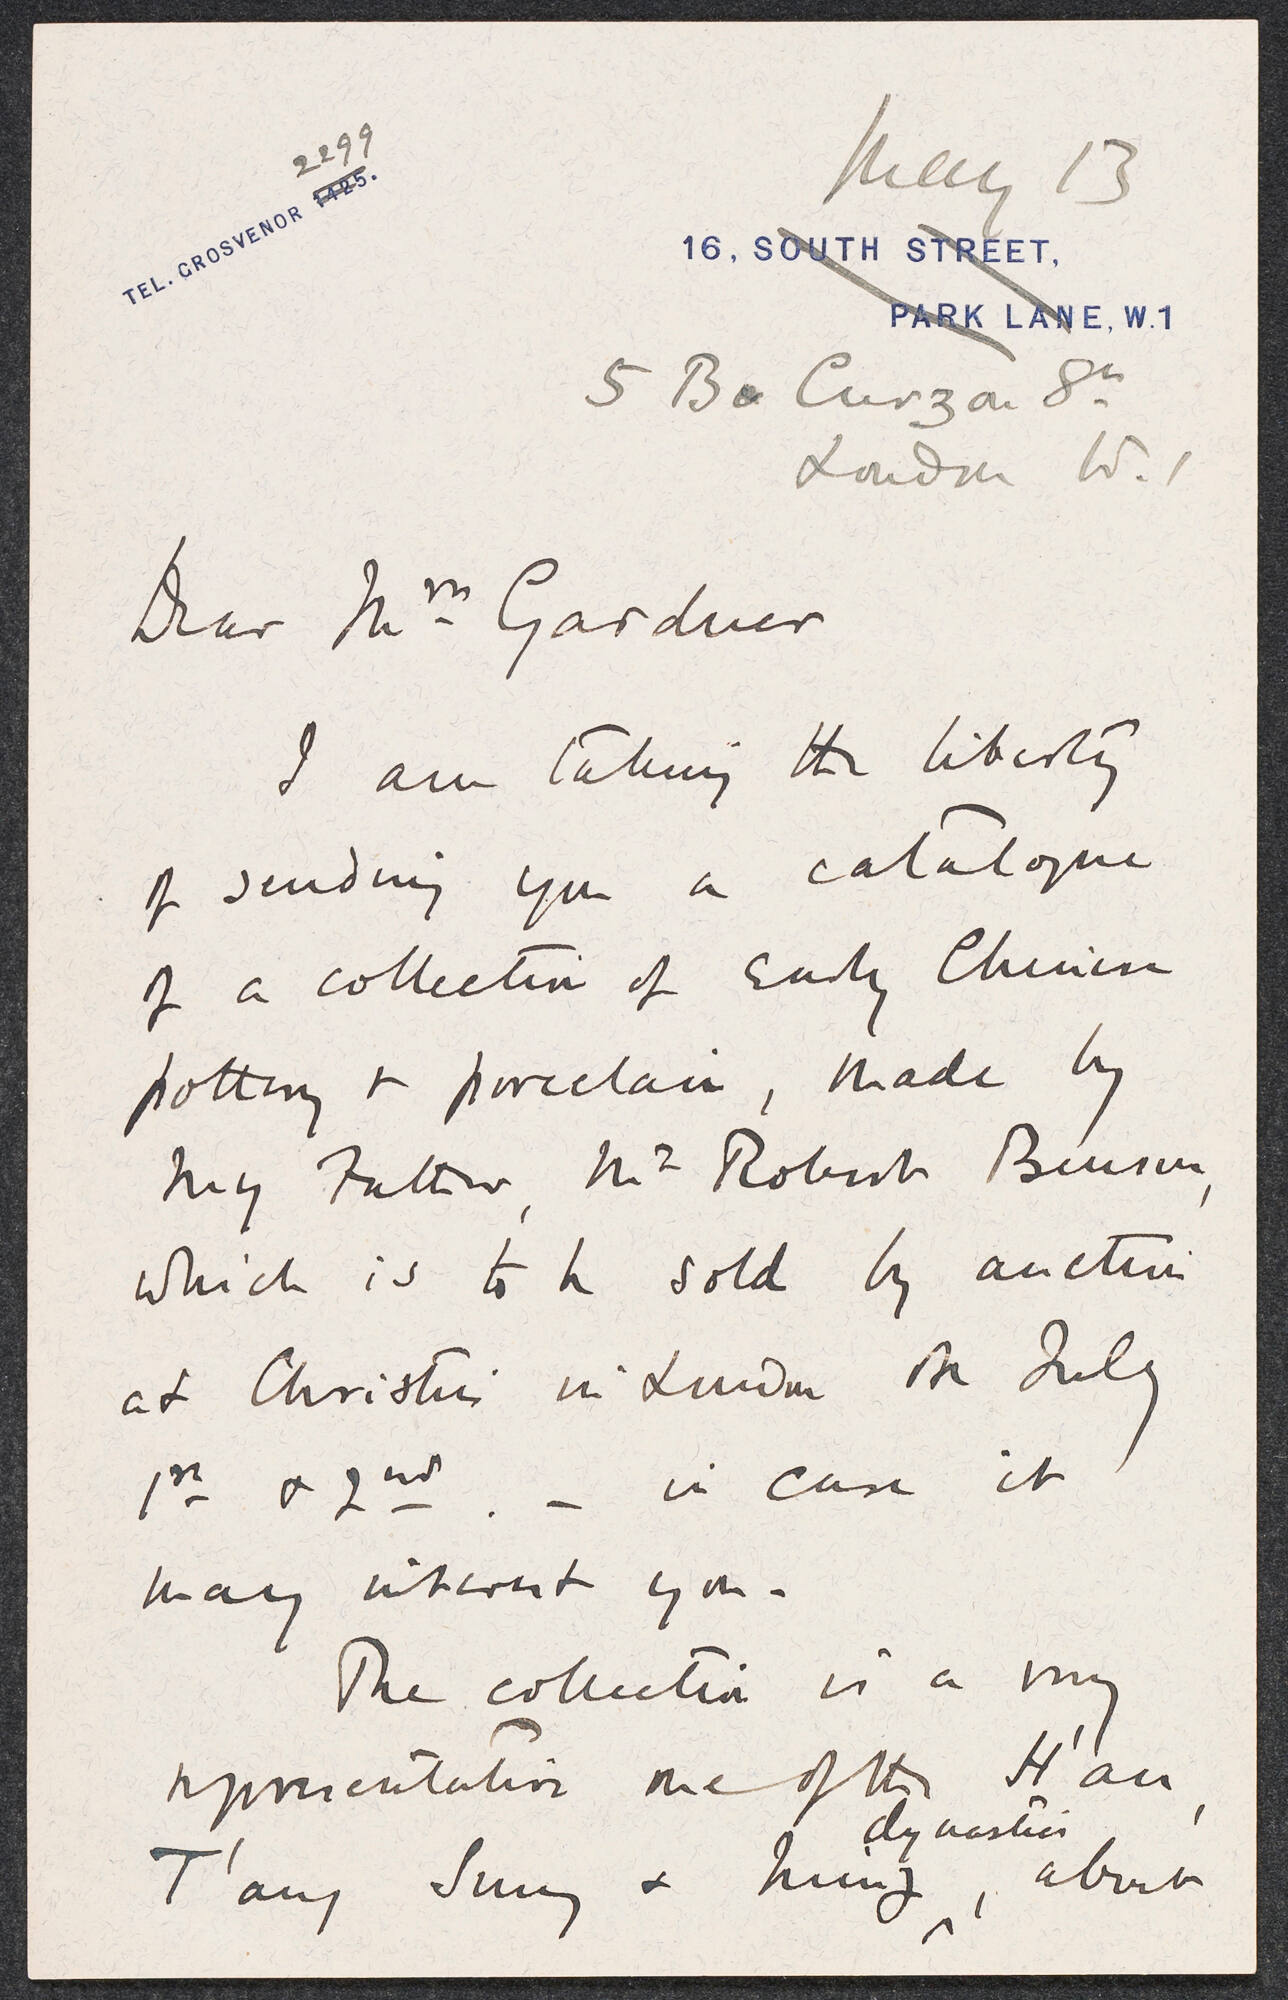 2299
TEL. GROSVENOR 1425.
May 13
16, SOUTH STREET,
PARK LANE, W.1
5 Curzon St
London W.1
Dear Mrs Gardner
I am taking the liberty
of sending you a catalogue
of a collection of Early Chinese
pottery & porcelain, made by
my Father, Mr Robert Benson,
which is to be sold by auction
at Christies in London on July
1st & 2nd. – in case it
may interest you.
The collection is a very
representative one of the H'an,
dynasties
T'ang Sung & Ming, about